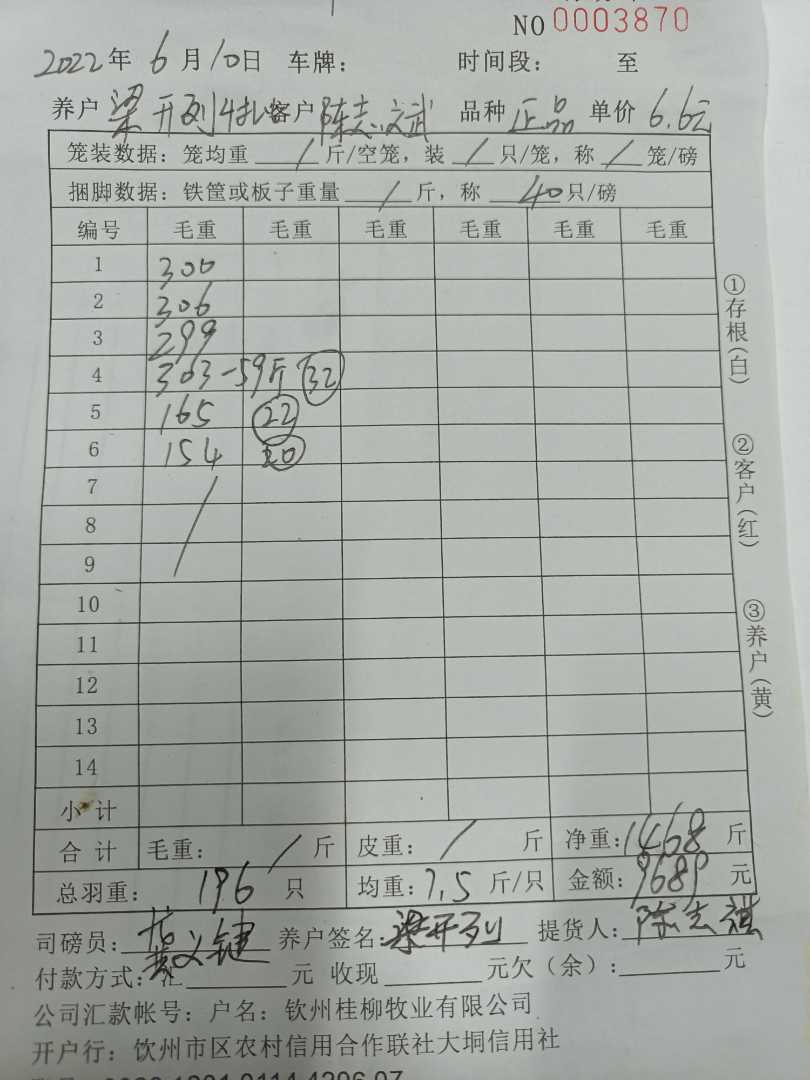 NO 0003870
2022年6月10日 车牌: 时间段: 至
养户 梁开列4扎 客户 陈志文武 品种 正品 单价 6.6元
笼装数据: 笼均重 / 斤/空笼, 装 / 只/笼, 称 / 笼/磅
捆脚数据: 铁筐或板子重量 / 斤, 称 40只/磅
编号 毛重 毛重 毛重 毛重 毛重 毛重
1 300
2 306
3 299
4 303-59斤 32
5 165 22
6 154 20
7
8
9
10
11
12
13
14
小计
合计 毛重: / 斤 皮重: / 斤 净重: 1468 斤
总羽重: 196 只 均重: 7.5 斤/只 金额: 9689 元
司磅员: 义键 养户签名: 梁开列 提货人: 陈志
付款方式: 汇 元 收现 元欠(余): 元
公司汇款帐号: 户名: 钦州桂柳牧业有限公司
开户行: 饮州市区农村信用合作联社大垌信用社
①存根(白)
②客户(红)
③养户(黄)